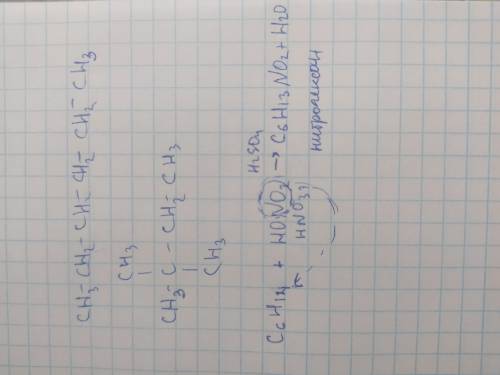 CH3-CH2-CH2-CH2-CH2-CH3
CH3
CH3-C-CH2-CH3
CH3
H2SO4
C6H14 + HONO2 → C6H13NO2 + H2O
HNO3
нитрогексан